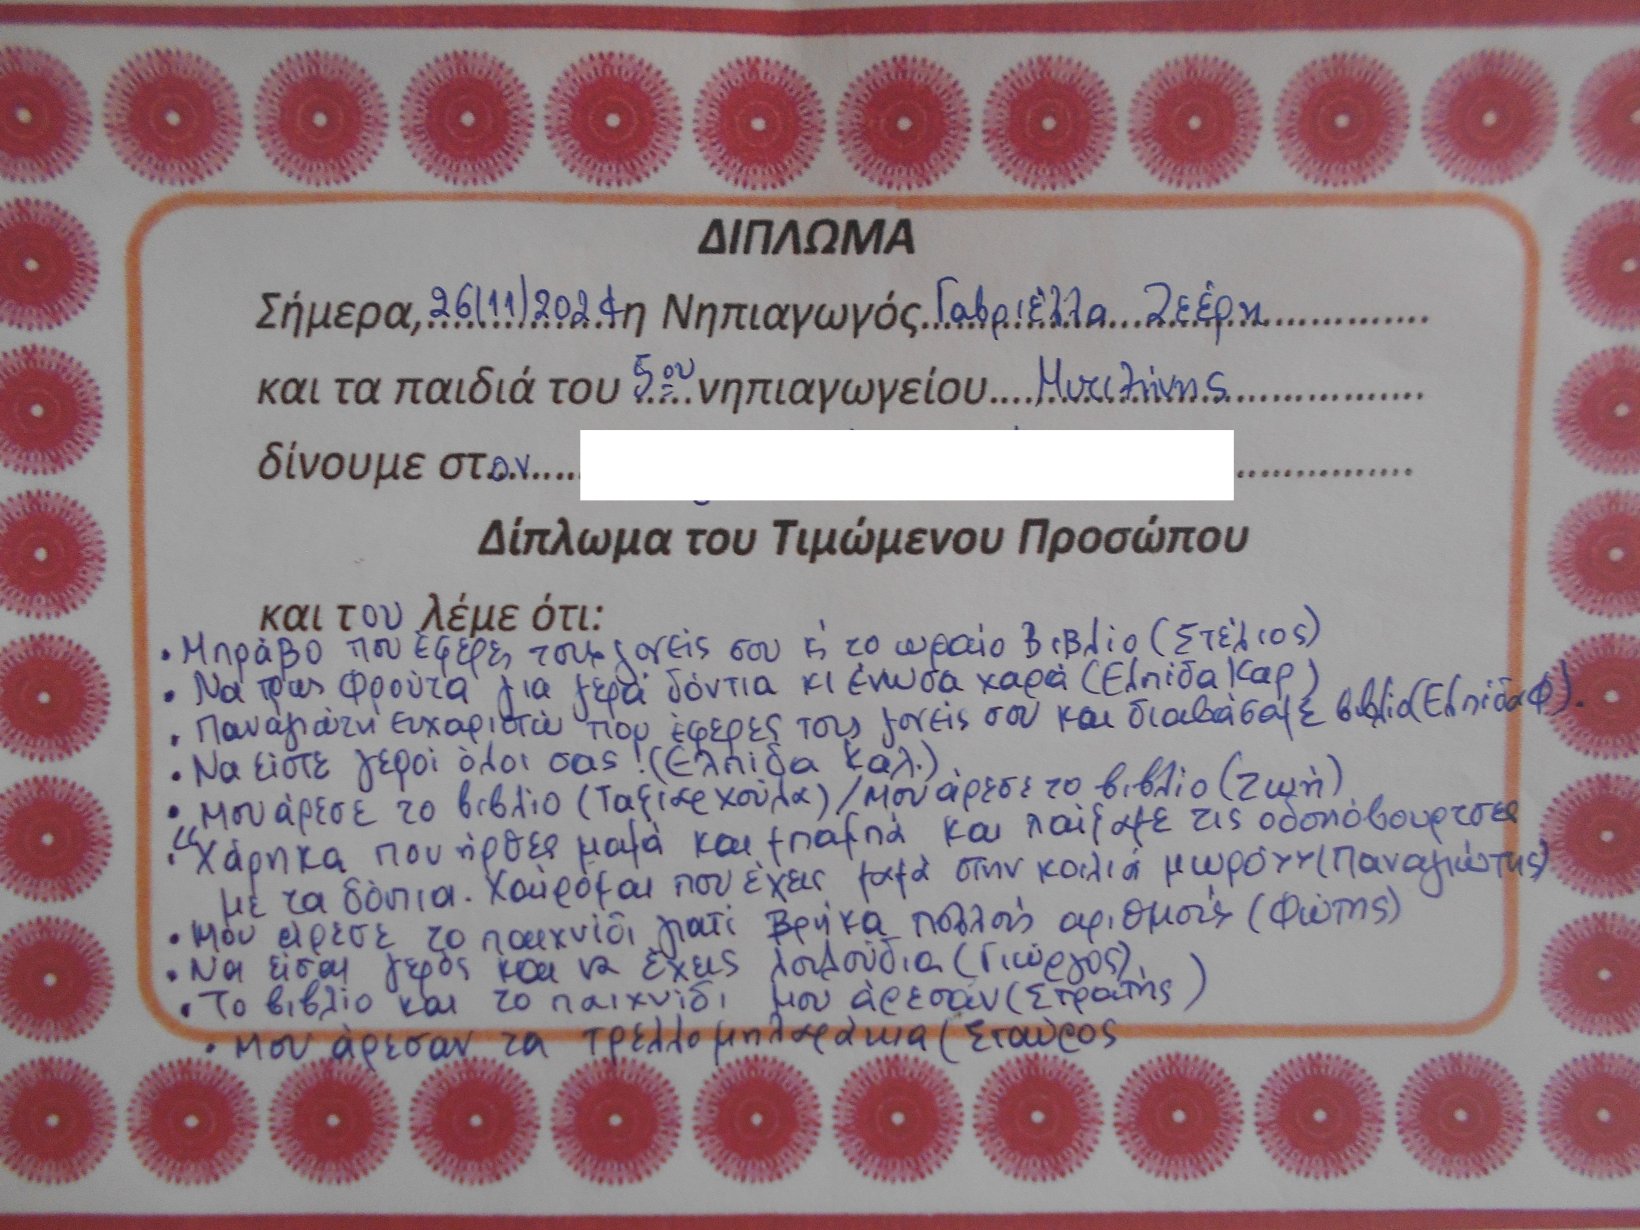 ΔΙΠΛΩΜΑ
Σήμερα, 26/11/2024 η Νηπιαγωγός Γαβριέλλα
και τα παιδιά του 5ου νηπιαγωγείου Μυτιλήνης
δίνουμε στον
Δίπλωμα του Τιμώμενου Προσώπου
και του λέμε ότι:
• Μπράβο που έφερες τους γονείς σου κ' το ωραίο βιβλίο (Στέλιος)
• Να τρως φρούτα για γερά δόντια κι ένιωσα χαρά (Ελπίδα Καρ)
• Παναγιώτη ευχαριστώ που έφερες τους γονείς σου και διαβάσαμε βιβλίο (Ελπίδα Φ).
• Να είστε γεροί όλοι σας! (Ελπίδα Καλ.)
• Μου άρεσε το βιβλίο (Ταξιαρχούλα) / Μου άρεσε το βιβλίο (Ζωή)
• "Χάρηκα που ήρθες μαμά και μπαμπά και παίξαμε τις οδοντόβουρτσες
με τα δόντια. Χαίρομαι που έχεις μαμά στην κοιλιά μωρό" (Παναγιώτης)
• Μου άρεσε το παιχνίδι γιατί βρήκα πολλούς αριθμούς (Φώτης)
• Να είσαι γερός και να έχεις λουλούδια (Γιώργος)
• Το βιβλίο και το παιχνίδι μου άρεσαν (Στρατής)
• Μου άρεσαν τα τρελλομπαλαράκια (Σταύρος